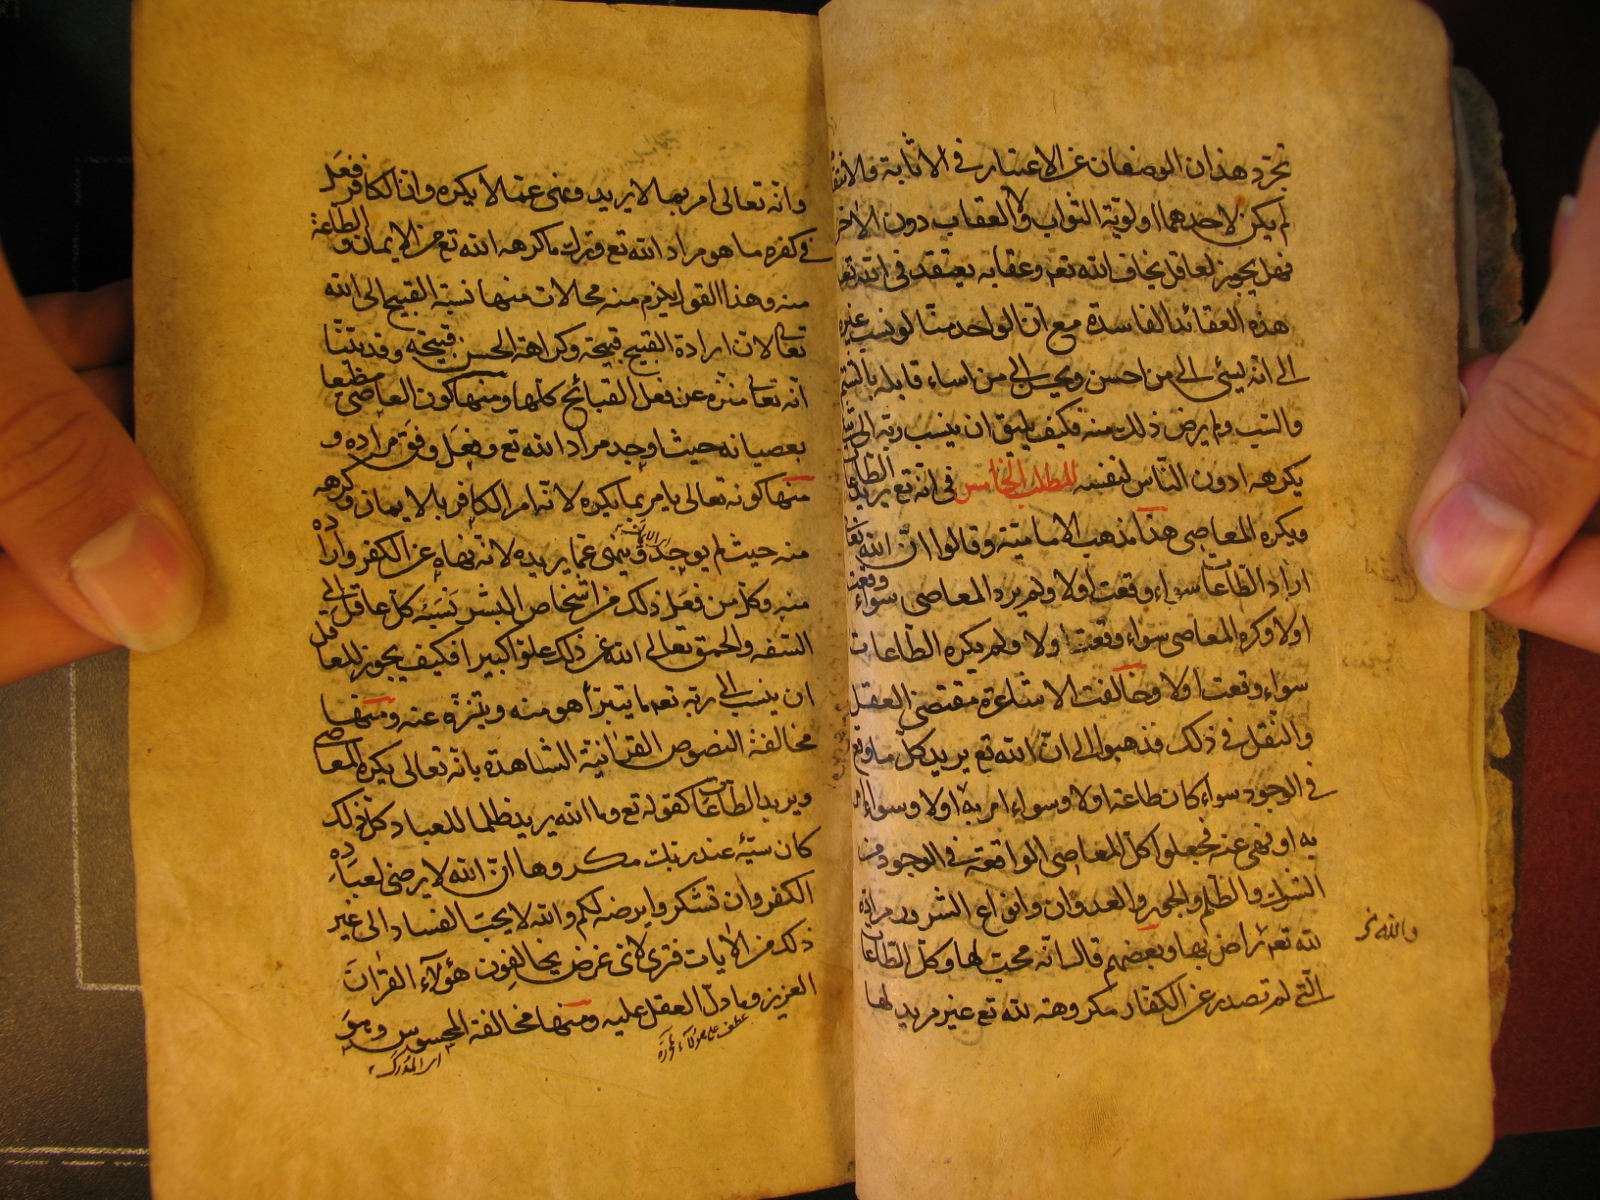 تجرد هذان الوصفان عن الاعتبار في الاثابة والانتقا
لم يكن لاحدهما اولوية الثواب ولا العقاب دون الاخر
فهل يجوز لعاقل يخاف الله تعه وعقابه يعتقد في الله تعه
هذه العقائد الفاسدة مع ان الواحد منا لو نسب غيره
الى انه يسئ الى من احسن ويحسن الى من اساء قابله بالشتم
والسب ولم يرض ذلك منه فكيف يليق ان ينسب ربه الى
يكرهه ادون الناس لنفسه المطلب الخامس في انه تع يريد الطاعا
ويكره المعاصي هذا مذهب الامامية وقالوا ان الله تعا
اراد الطاعات سواء وقعت اولا ولم يرد المعاصي سواء وقعت
اولا وكره المعاصي سواء وقعت اولا ولم يكره الطاعات
سواء وقعت اولا وخالفت الاشاعرة مقتضى العقل
والنقل في ذلك فذهبوا الى ان الله تع يريد كل ما وقع
في الوجود سواء كان طاعة اولا وسواء امر به اولا وسواء
به او نهى عنه فجعلوا كل المعاصي الواقعة في الوجود من
الشرك والظلم والجور والعدوان وانواع الشرور مرادة
لله تعه راض بها وبعضهم قال انه محب لها وكل الطاعات
التي لم تصدر عن الكفار مكروهة لله تع غير مريد لها
والله
وانه تعالى امر بها لا يريد ونهى عما لا يكره وان الكافر فعل
في كفره ما هو مراد الله تع وترك ما كرهه الله تع من الايمان والطاعة
منه وهذا القول يلزم منه محالات منها نسبة القبيح الى الله
تعالى لان ارادة القبيح قبيحة وكراهة الحسن قبيحة وقد بينا
انه تعالى منزه عن فعل القبائح كلها ومنها كون العاصي مطيعا
بعصيانه حيث اوجد مراد الله تع وفعل وفق مراده و
منها كونه تعالى يامر بما يكره لانه امر الكافر بالايمان وكرهه
منه حيث لم يوجد وينهى عما يريده لانه نهاه عن الكفر واراده
منه وكل من فعل ذلك من اشخاص البشر ينسبه كل عاقل الى
السفه والحمق تعالى الله عن ذلك علوا كبيرا فكيف يجوز للعاقل
ان ينسب الى ربه تعه ما يتبرأ هو منه ويتنزه عنه ومنها
مخالفة النصوص القرانية الشاهدة بانه تعالى يكره المعاصي
ويريد الطاعات كقوله تع وما الله يريد ظلما للعباد كل ذلك
كان سيئه عند ربك مكروها ان الله لا يرضى لعباده
الكفر وان تشكروا يرضه لكم والله لا يحب الفساد الى غير
ذلك من الايات فترى لاى غرض يخالفون هؤلاء القران
العزيز وما دل العقل عليه ومنها مخالفة المحسوس وهو
عطف على هؤلاء